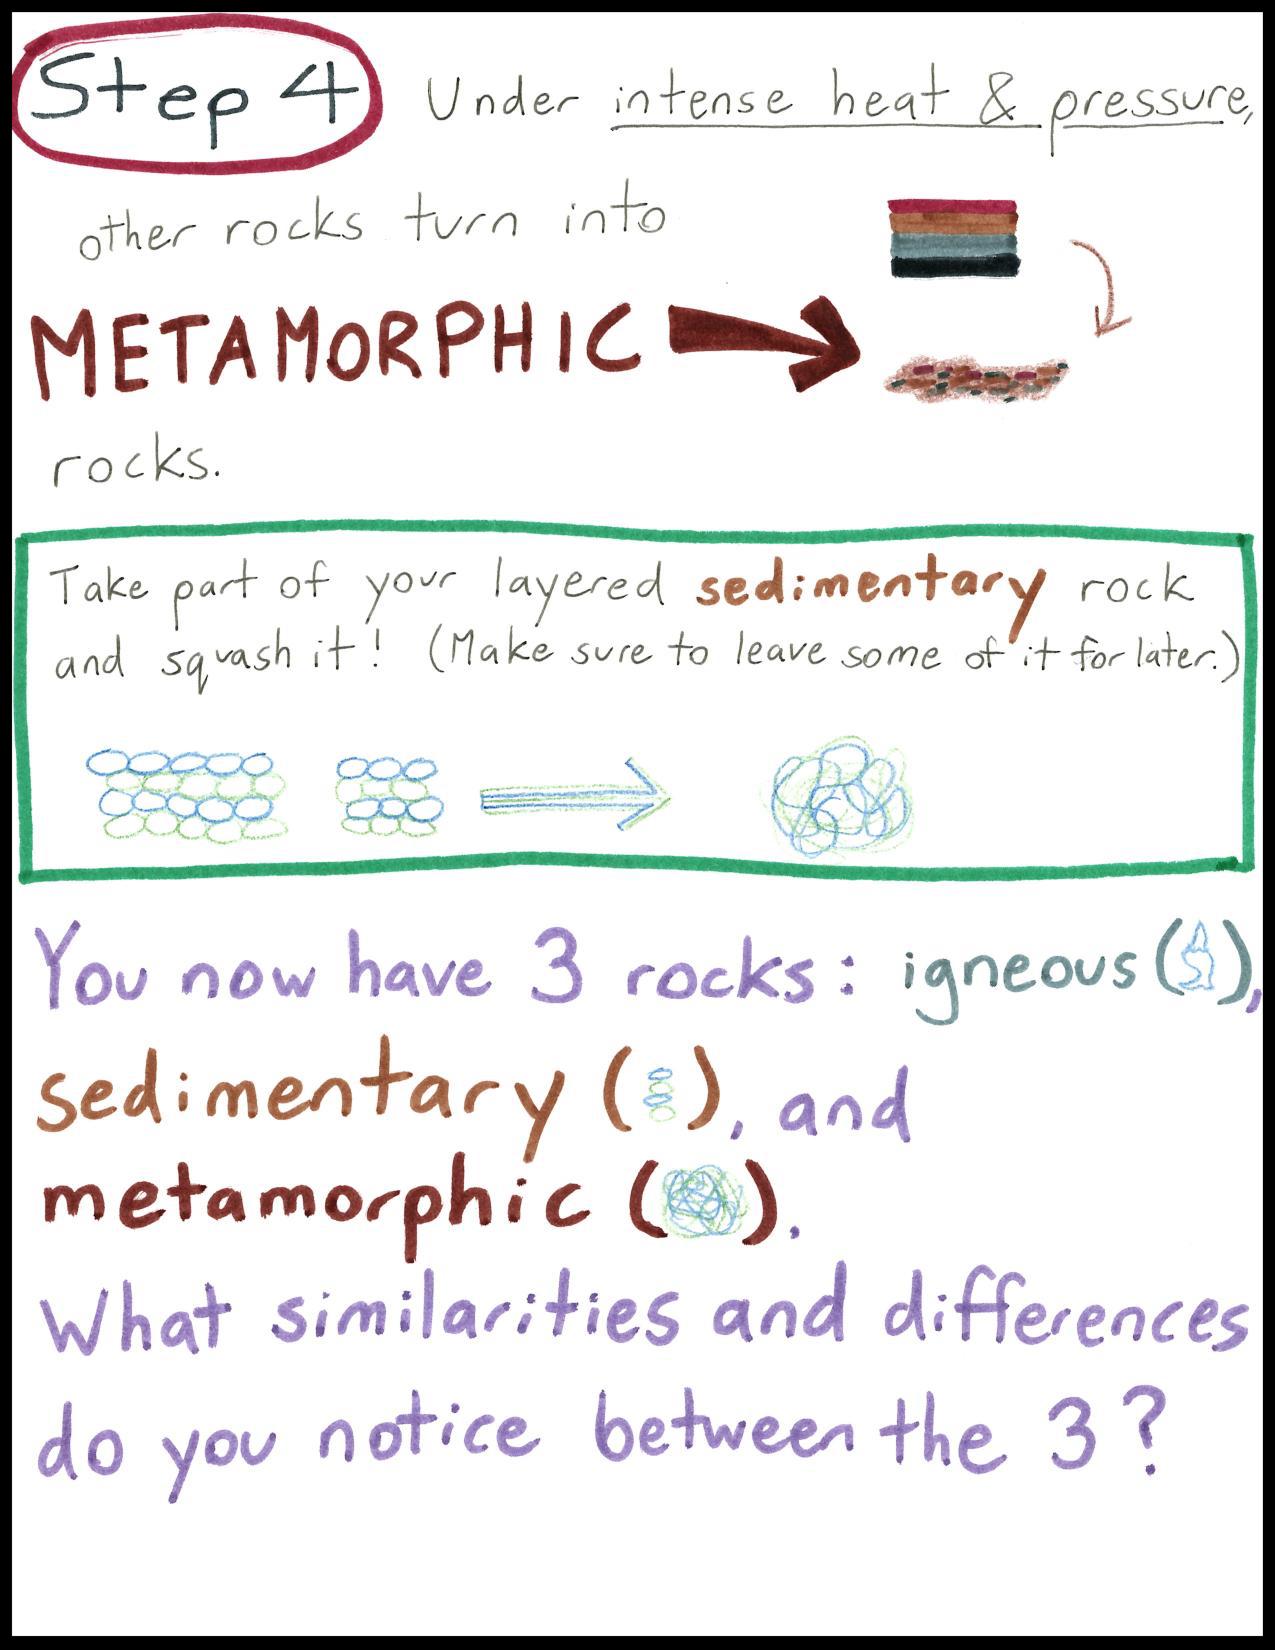 Step 4 Under intense heat & pressure,
other rocks turn into
METAMORPHIC
rocks.
Take part of your layered sedimentary rock
and squash it! (Make sure to leave some of it for later.)
You now have 3 rocks: igneous ( ),
sedimentary ( ), and
metamorphic ( ).
What similarities and differences
do you notice between the 3?